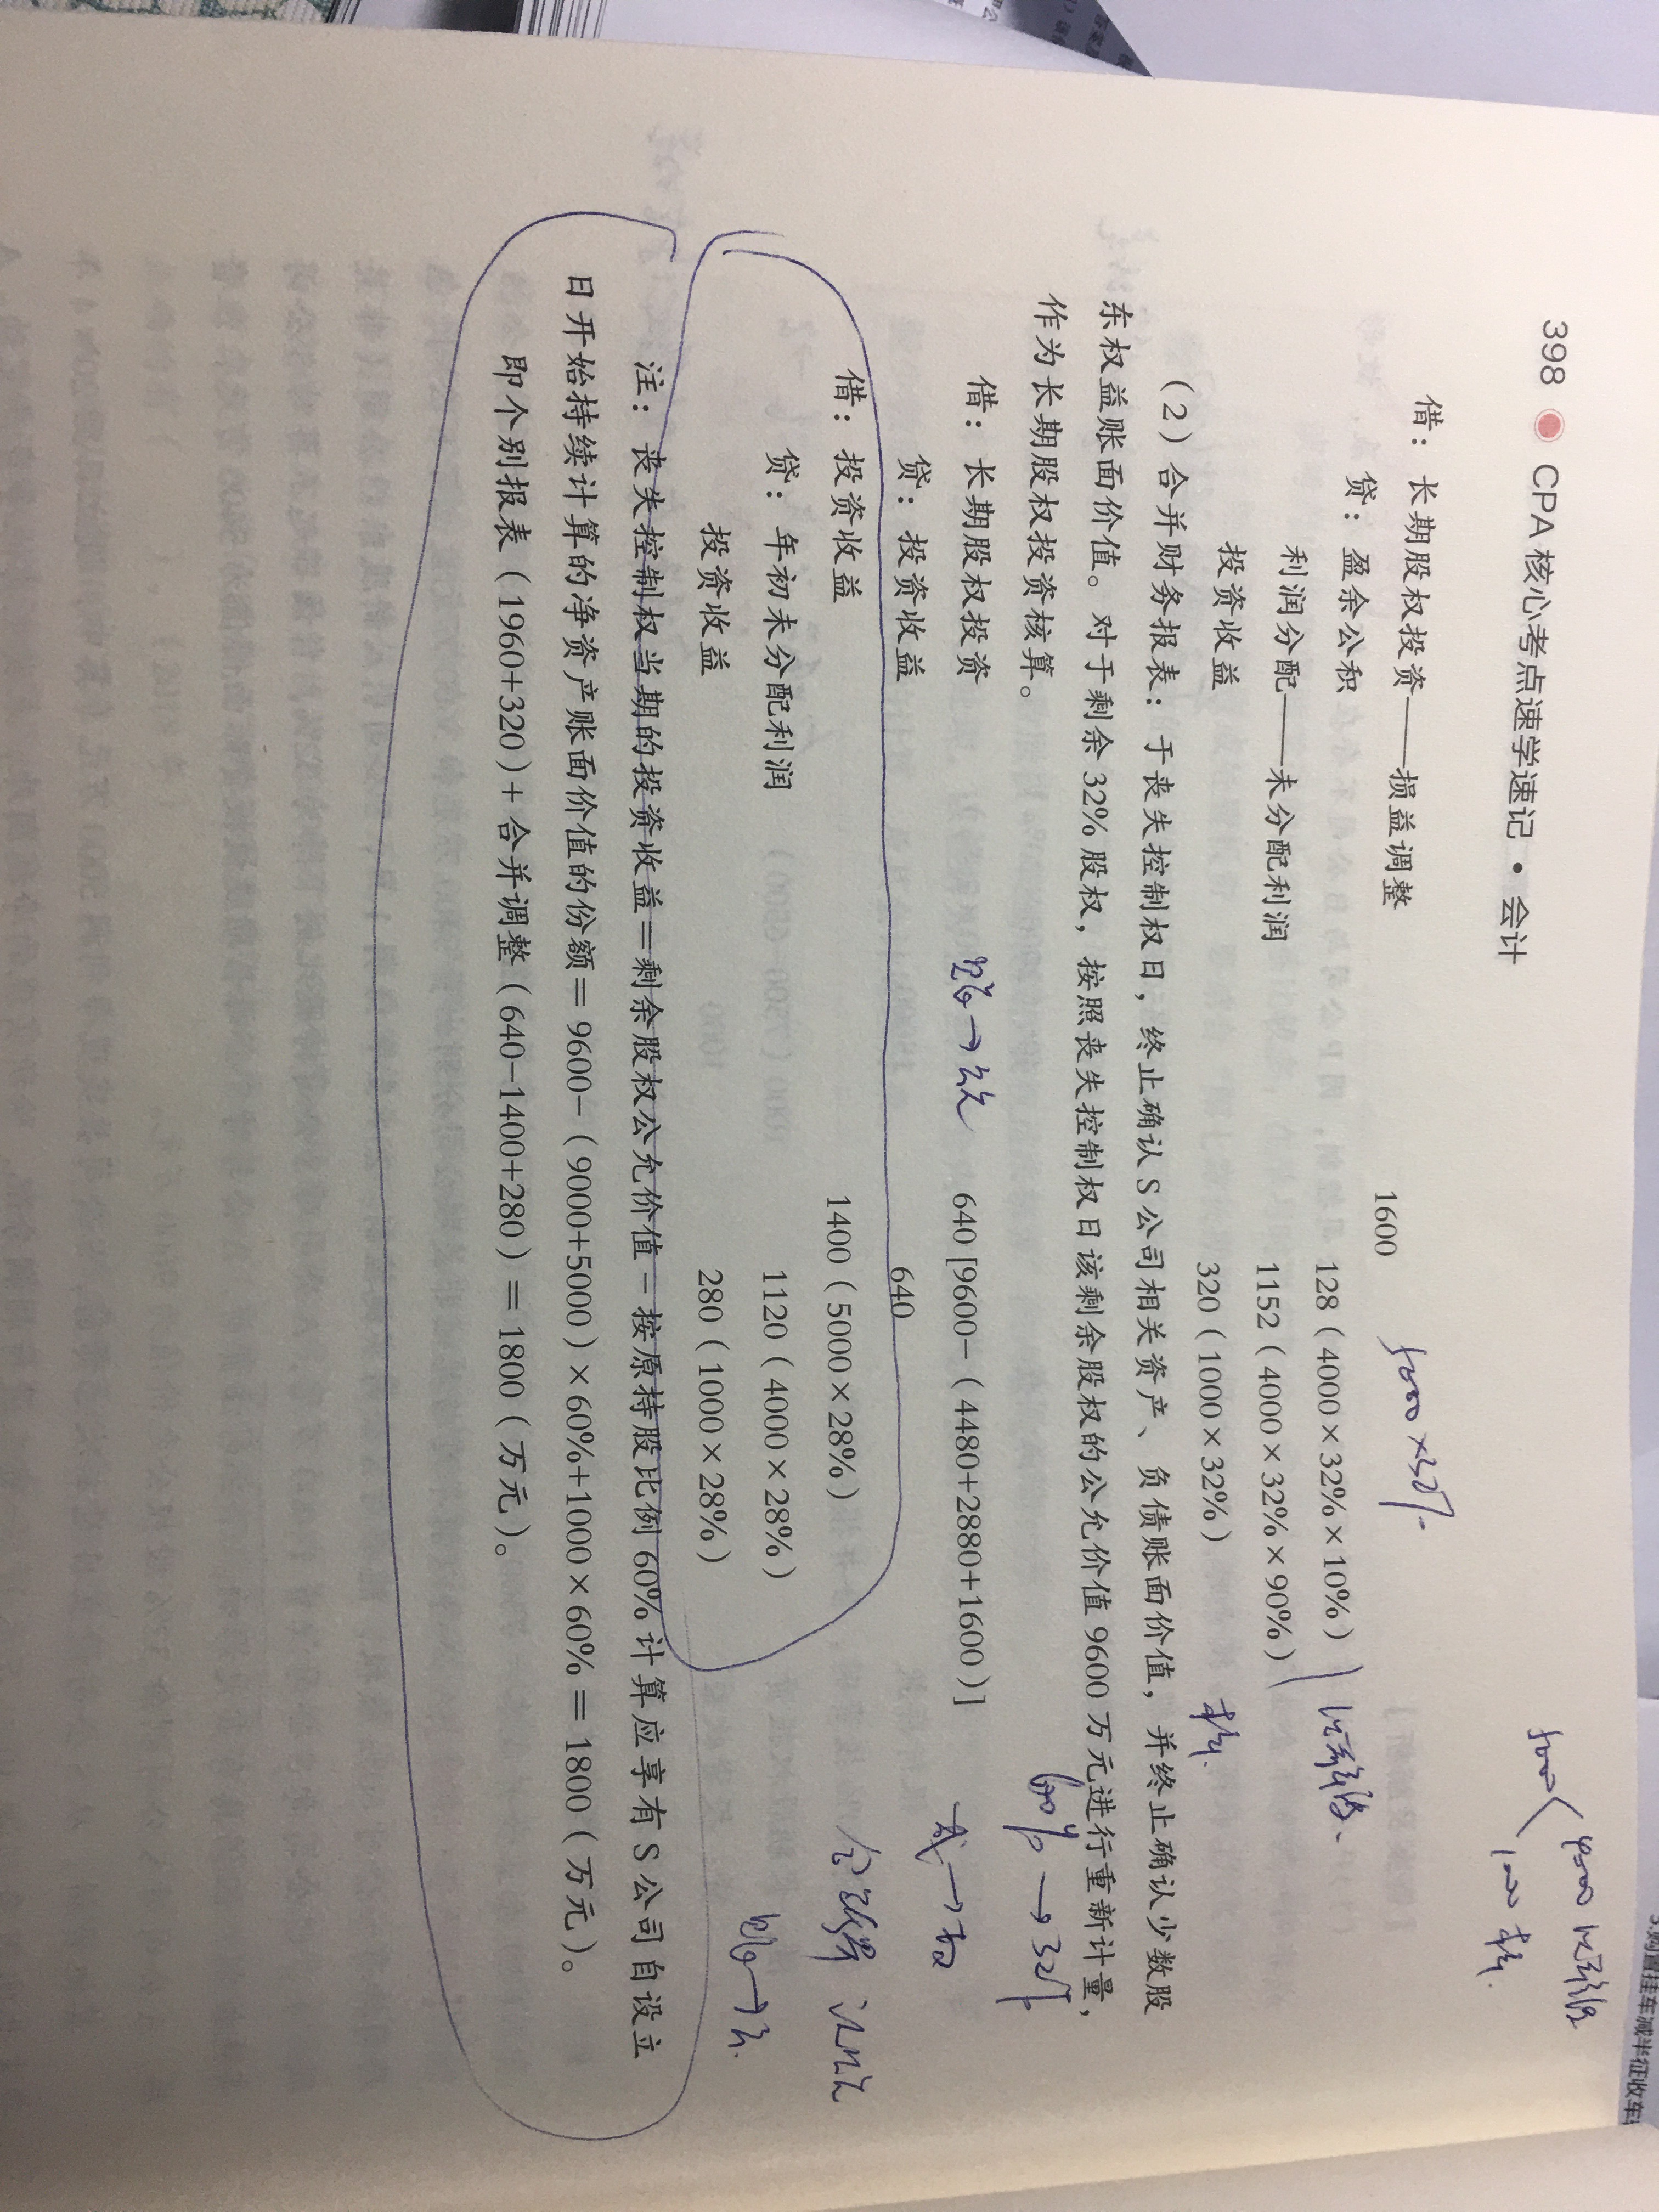 398 CPA 核心考点速学速记·会计
借：长期股权投资——损益调整 1600 5000×32%
贷：盈余公积 128（4000×32%×10%）
利润分配——未分配利润 1152（4000×32%×90%）
投资收益 320（1000×32%）
（2）合并财务报表：于丧失控制权日，终止确认 S 公司相关资产、负债账面价值，并终止确认少数股
东权益账面价值。对于剩余 32% 股权，按照丧失控制权日该剩余股权的公允价值 9600 万元进行重新计量，
作为长期股权投资核算。
60% → 32%
借：长期股权投资 640 [9600−（4480+2880+1600）]
贷：投资收益 640
借：投资收益 1400（5000×28%）
贷：年初未分配利润 1120（4000×28%）
投资收益 280（1000×28%）
注：丧失控制权当期的投资收益＝剩余股权公允价值－按原持股比例 60% 计算应享有 S 公司自设立
日开始持续计算的净资产账面价值的份额＝9600−（9000+5000）×60%+1000×60%＝1800（万元）。
即个别报表（1960+320）+合并调整（640−1400+280）＝1800（万元）。
5000
4000
1000
5.购置挂车减半征收车